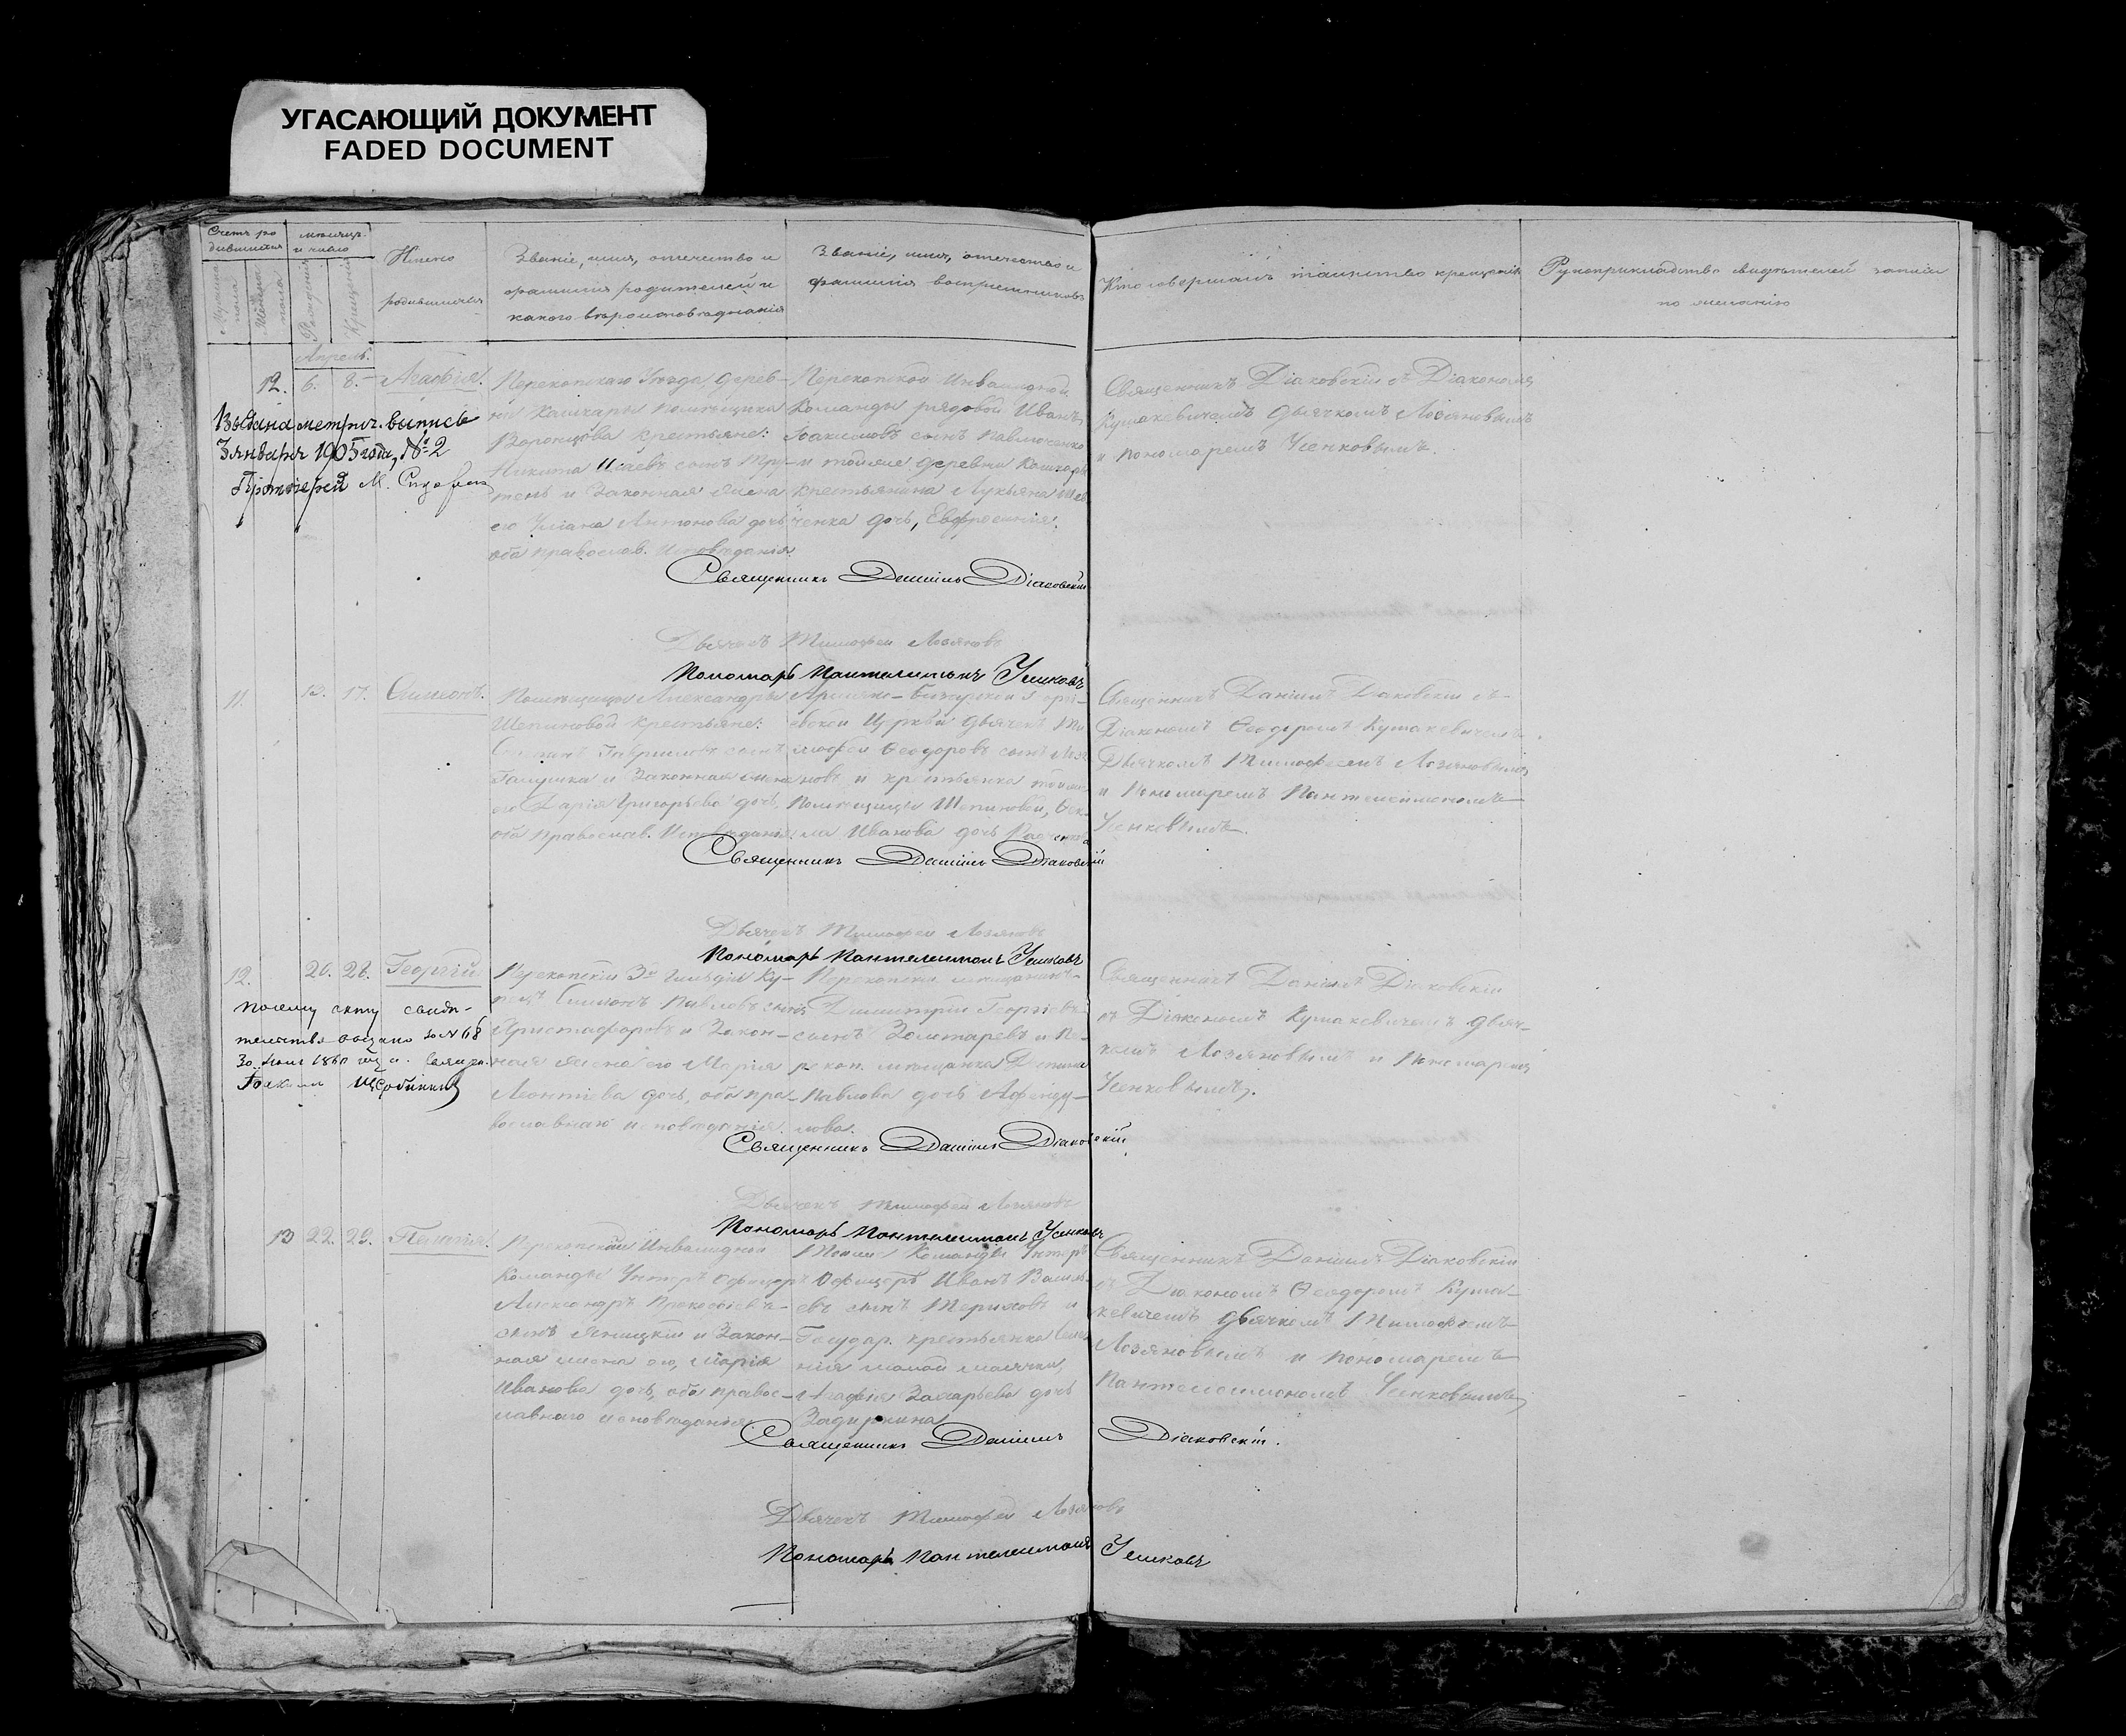 УГАСАЮЩИЙ ДОКУМЕНТ
FADED DOCUMENT
Счетъ ро
дившихся
Мужеска
пола
Женска
пола
мѣсяцъ
и число
Рожденія
Крещенія
Имена
родившихся
Званіе, имя, отечество и
фамилія родителей и
какого вѣроисповѣданія
Званіе, имя, отечество и
фамилія воспріемниковъ
Кто совершалъ таинство крещенія
Рукоприкладство свидѣтелей записи
по желанію
Апрель.
12. 6. 8. Агафія.
Выдана метрич. выпись
3 января 1905 года, № 2
Протоіерей М.
Перекопскаго Уѣзда, дерев-
ни Кашкары помѣщика
Воронцова крестьяне:
Никита Исаевъ сынъ Тру-
тень и Законная жена
его Уліана Антонова дочь
оба православ. Исповѣданія.
Перекопской Инвалидной
Команды рядовой Иванъ
сынъ Павлюченко
и тойже деревни Кашкары
крестьянина Лукьяна Шев
ченка дочь, Евфросинія.
Священникъ Діаковскій съ Діакономъ
Кушакевичемъ дьячкомъ Лозяновымъ
и пономаремъ Усенковымъ.
Священникъ Даніилъ Діаковскій
Дьячекъ Тимофей Лозяновъ
Пономарь Пантелеимонъ Усенковъ
11. 13. 17. Симеонъ.
Помѣщицы Александры
Шепиновой крестьяне:
Гавриловъ сынъ
Галушка и Законная жена
его Дарія Григорьева дочь,
оба православ. Исповѣданія.
Армяно-Базарской
евской Церкви дьячекъ Ти
мофей Ѳеодоровъ сынъ Лозя
новъ и крестьянка тойже
помѣщицы Шепиновой, Ѳек
ла Иванова дочь
Священникъ Даніилъ Діаковскій съ
Діакономъ Ѳеодоромъ Кушакевичемъ,
Дьячкомъ Тимофеемъ Лозяновымъ
и Пономаремъ Пантелеимономъ
Усенковымъ.
Священникъ Даніилъ Діаковскій
Дьячекъ Тимофей Лозяновъ
Пономарь Пантелеимонъ Усенковъ
12. 20. 26. Георгій
по сему акту свидѣ-
тельство выдано за № 68
30 1860 года.
Іоакимъ
Перекопскій 3й гильдіи Ку-
пецъ Симеонъ Павловъ сынъ
Христофоровъ и Закон-
ная жена его Марія
Леонтіева дочь, оба пра-
вославнаго исповѣданія.
Перекопскій мѣщанинъ
Димитрій Георгіевъ
сынъ Золотаревъ и Пе-
рекоп. мѣщанка
Павлова дочь Афенду-
лова.
Священникъ Даніилъ Діаковскій
съ Діакономъ Кушакевичемъ дьяч-
комъ Лозяновымъ и Пономаремъ
Усенковымъ.
Священникъ Даніилъ Діаковскій
Дьячекъ Тимофей Лозяновъ
Пономарь Пантелеимонъ Усенковъ
13 22. 29. Пелагія.
Перекопской Инвалидной
Команды Унтеръ Офицеръ
Александръ Прокофіевъ
сынъ и Закон-
ная жена его, Марія
Иванова дочь, оба правос-
лавнаго исповѣданія
Тойже Команды Унтеръ
Офицеръ Иванъ Василь-
евъ сынъ Териховъ и
Государ. крестьянка
Агафія Захарьева дочь
Священникъ Даніилъ Діаковскій
съ Діакономъ Ѳеодоромъ Куша-
кевичемъ дьячкомъ Тимофеемъ
Лозяновымъ и пономаремъ
Пантелеимономъ Усенковымъ
Священникъ Даніилъ Діаковскій.
Дьячекъ Тимофей Лозяновъ
Пономарь Пантелеимонъ Усенковъ